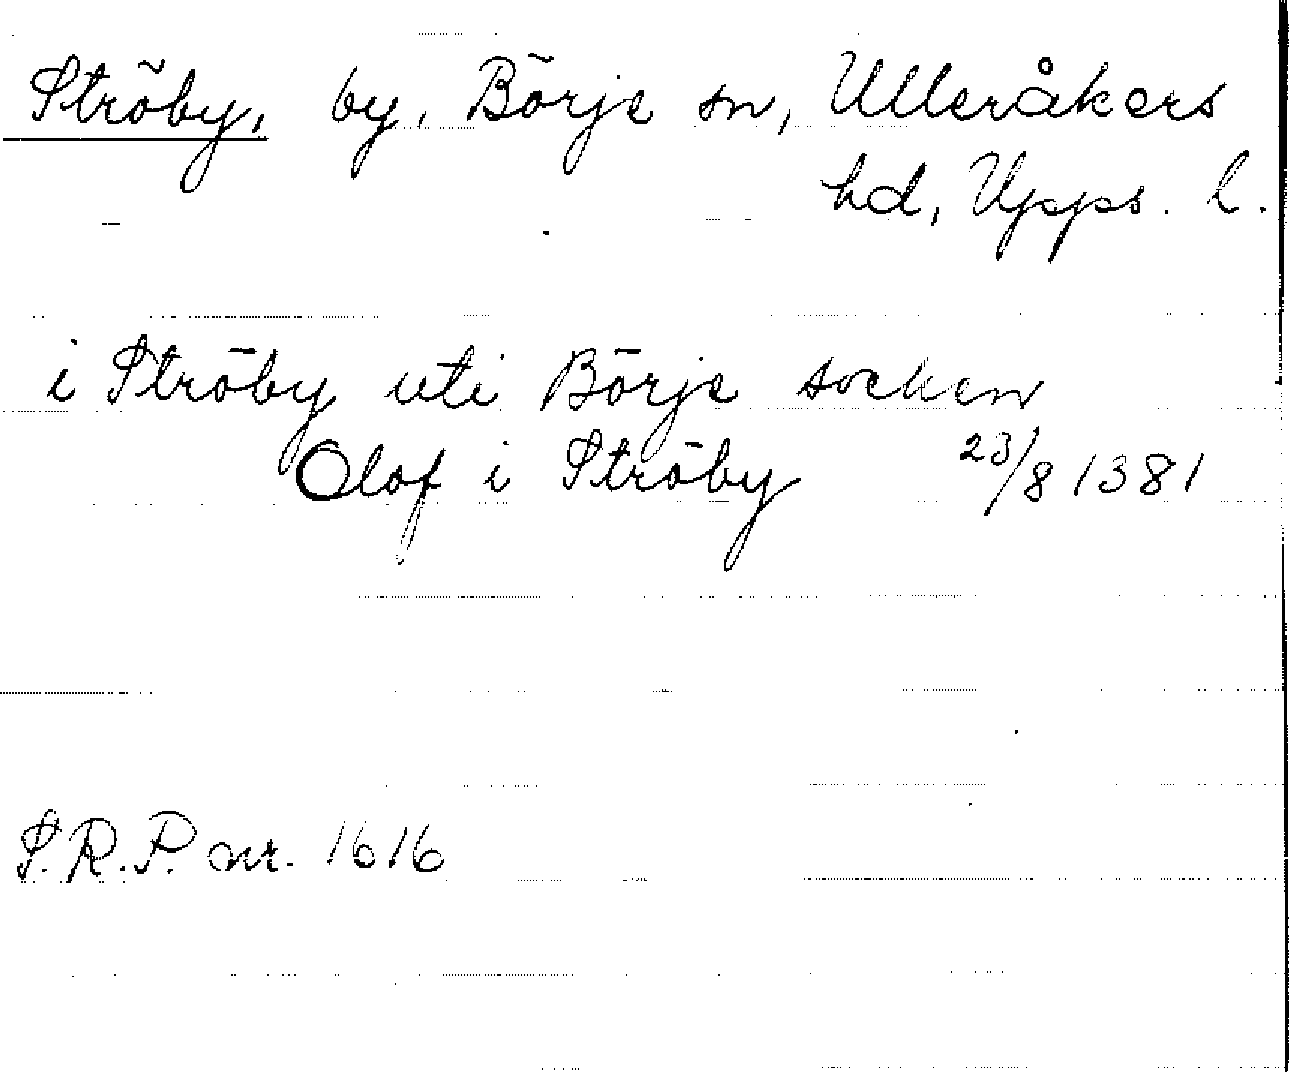 Ströby, by, Börje sn, Ulleråkers
hd, Upps. l.
i Ströby uti Börje socken
Olof i Ströby 23/8 1381
S.R.P. nr. 1616